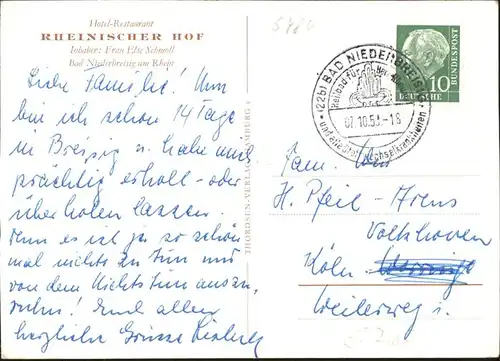 Hotel-Restaurant
RHEINISCHER HOF
Inhaber: Frau Else Schmoll
Bad Niederbreisig am Rhein
Liebe Familie! Nun
bin ich schon 14 Tage
in Breisig u. habe mich
prächtig erholt - oder
über holen lassen.
Denn es ist ja so schön
mal nichts zu tun und
von dem Nichtstun auszu-
ruhn! Euch allen
herzliche Grüsse
THORDSEN-VERLAG HAMBURG
(22b) BAD NIEDERBREISIG
Heilbad für
07.10.5 -18
und Stoffwechselkrankheiten
10
DEUTSCHE
BUNDESPOST
Fam.
H. Pfeil - Arens
Volkhoven
Köln-
Weilerweg 1.